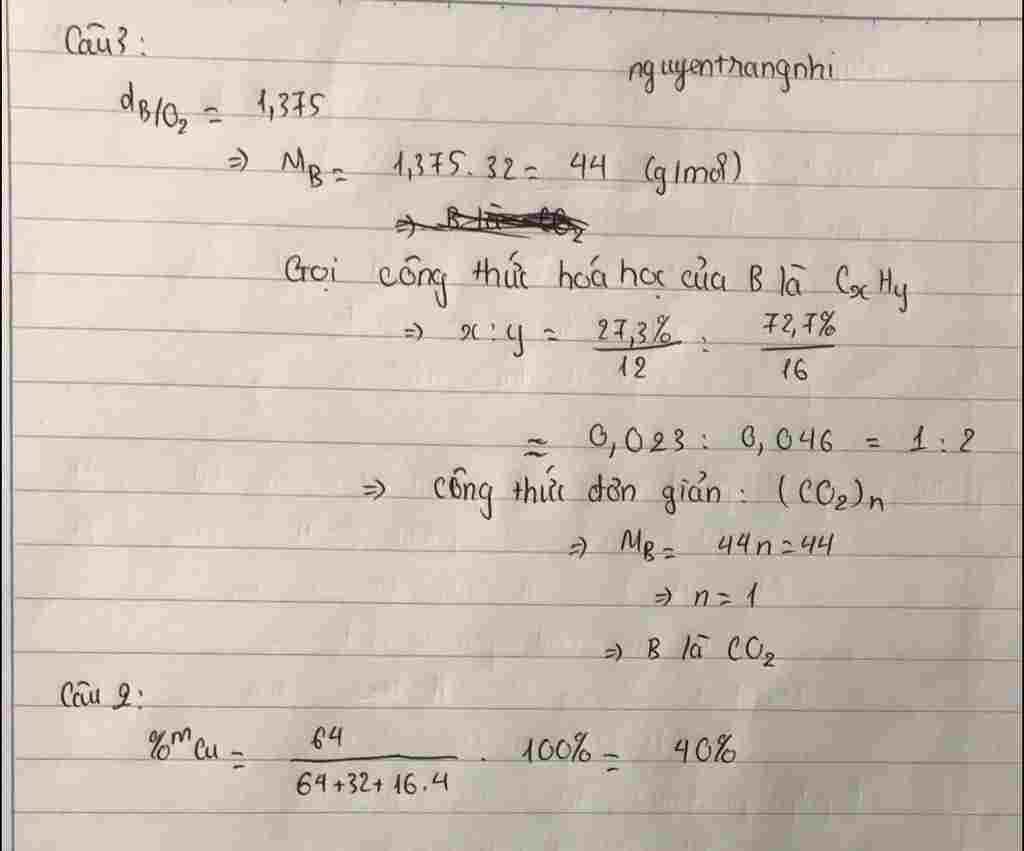 Câu 3:
nguyentrangnhi
dB/O₂ = 1,375
⇒ MB = 1,375.32 = 44 (g/mol)
⇒ B là CO₂
Gọi công thức hoá học của B là CxHy
⇒ x:y = 27,3%/12 : 72,7%/16
≈ 0,023 : 0,046 = 1:2
⇒ công thức đơn giản: (CO₂)n
⇒ MB = 44n = 44
⇒ n = 1
⇒ B là CO₂
Câu 2:
%mCu = 64/(64+32+16.4) . 100% = 40%